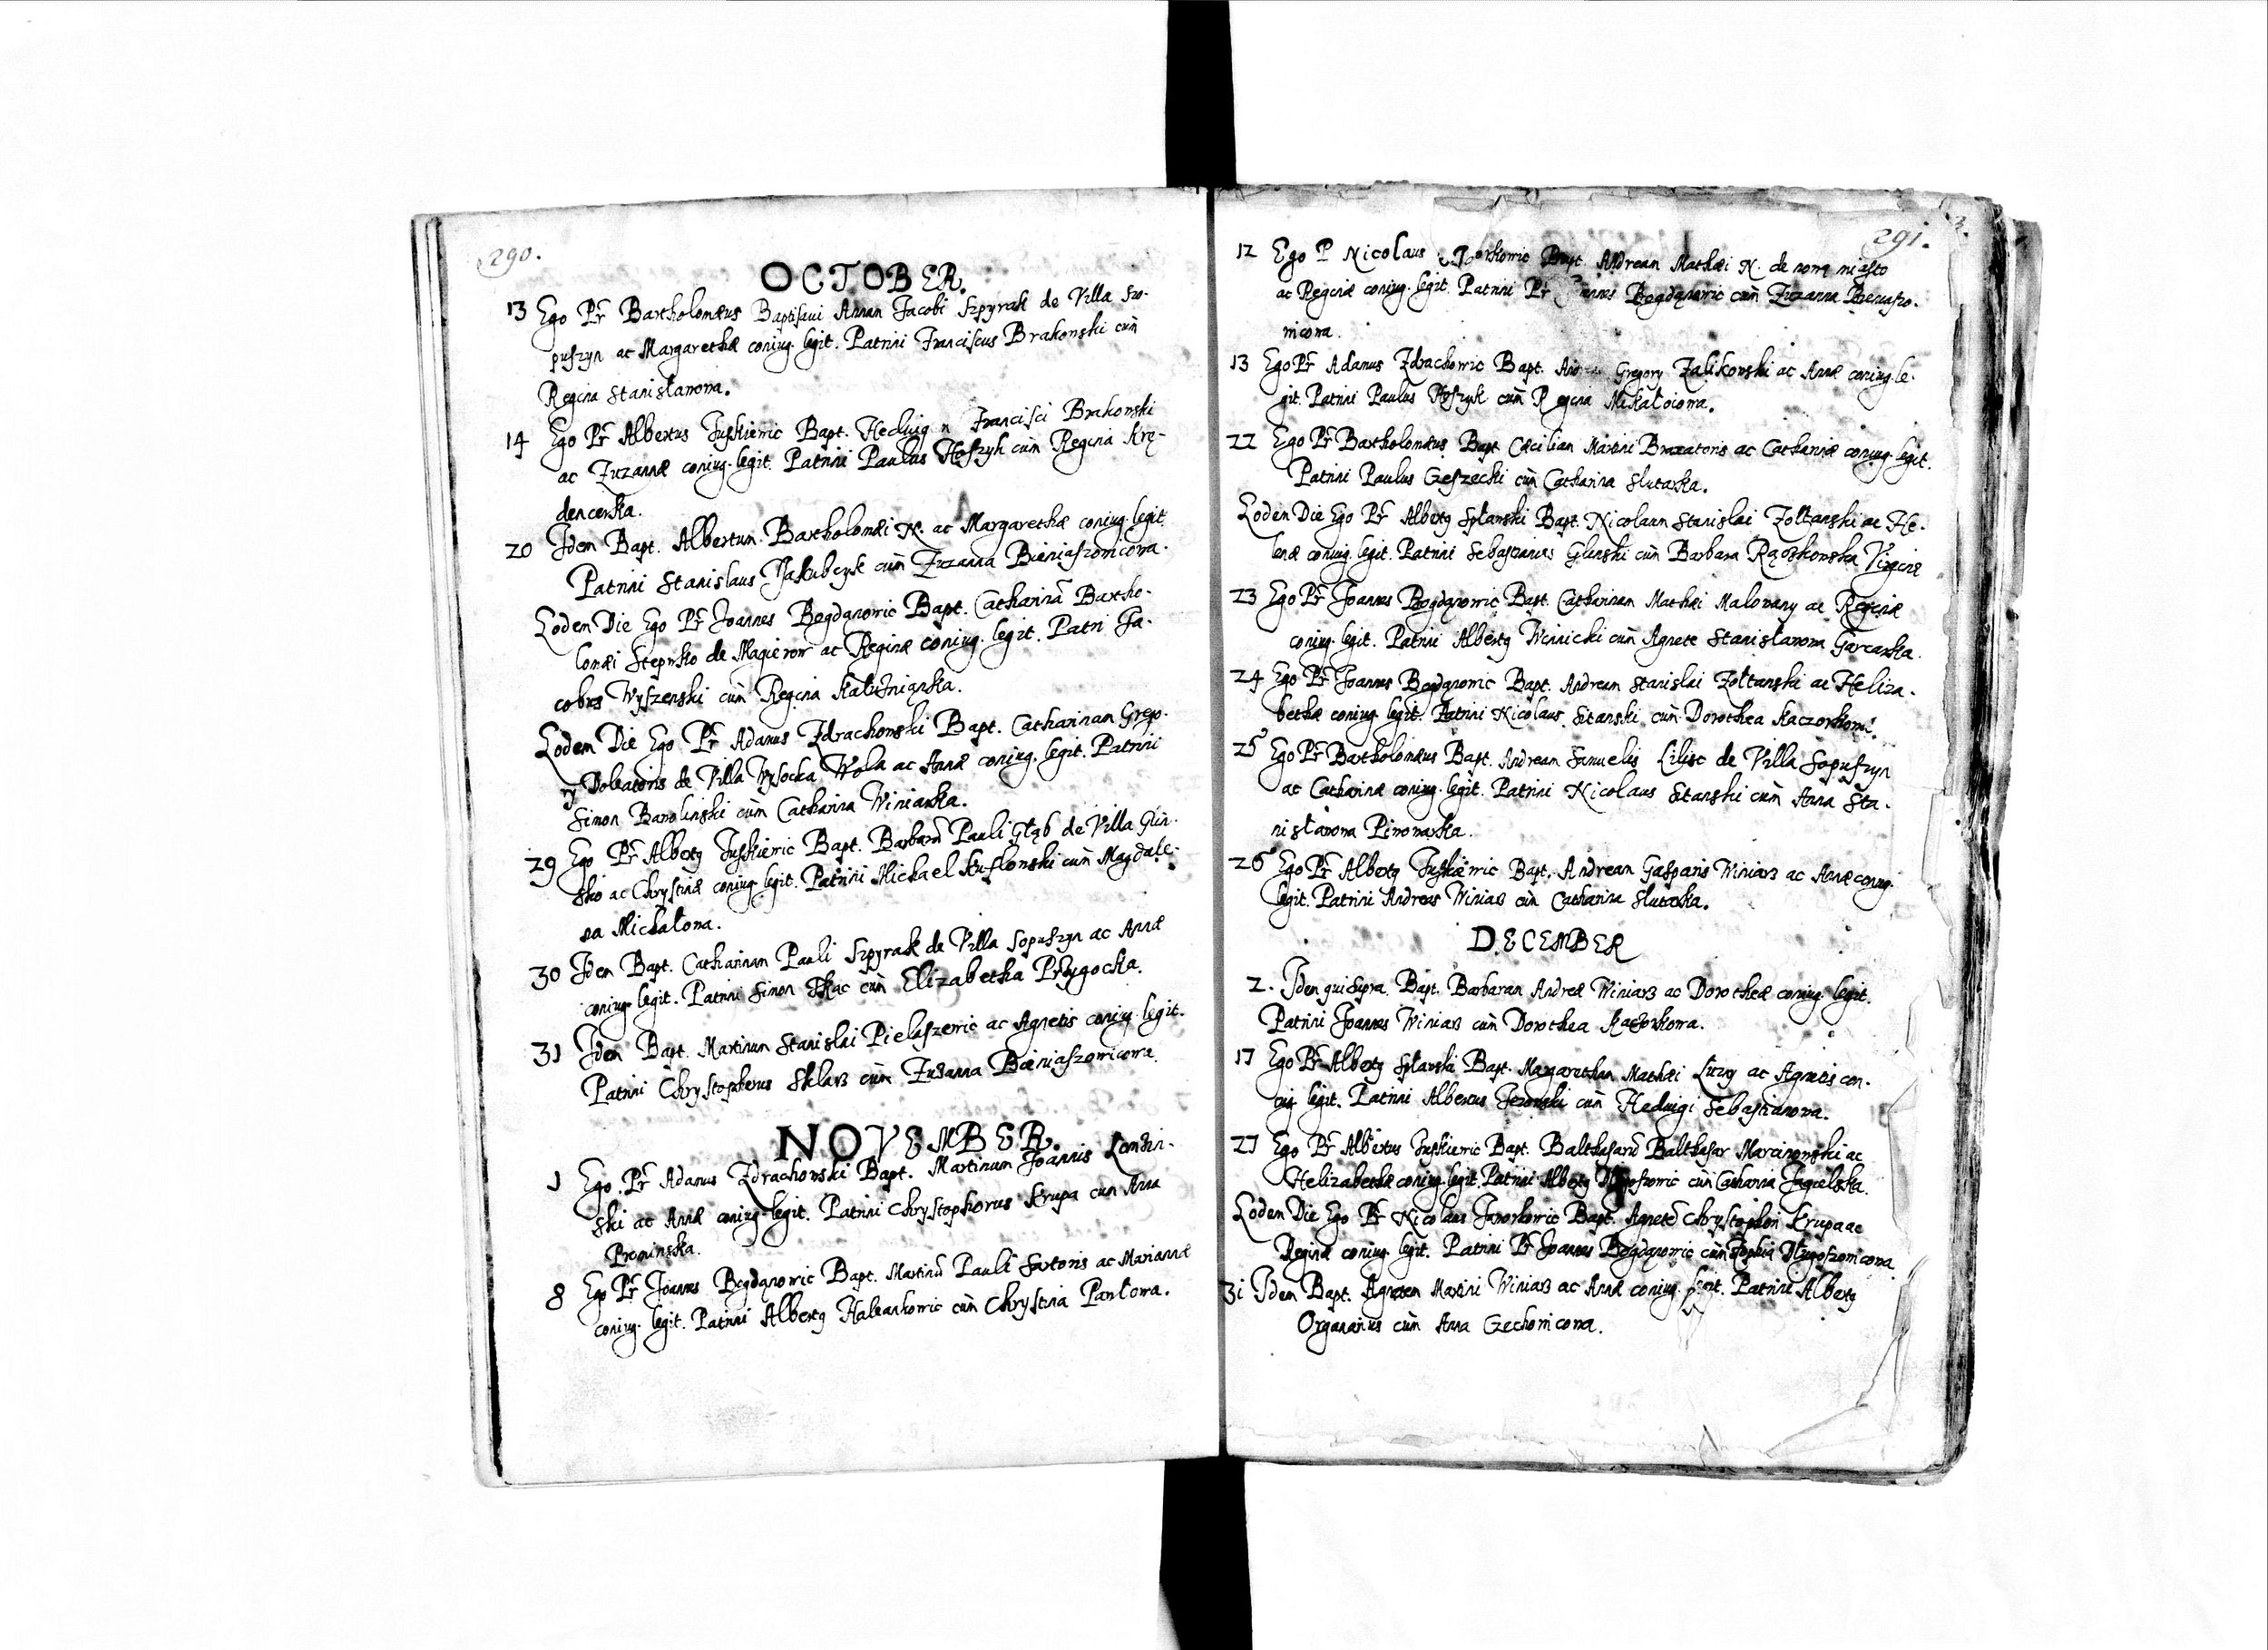 290.
OCTOBER.
13 Ego Pr̃ Bartholomæus Baptisavi Annam Jacobi Szpyrak de Villa So-
puszyn ac Margarethæ coniug. legit. Patrini Franciscus Brakowski cũm
Regina Stanisławowa.
14 Ego Pr̃ Albertus Juszkiewic Bapt. Hedvig Francisci Brakowski
ac Zuzannæ coniug. legit. Patrini Paulus cũm Regina Krę-
dencerka.
20 Idem Bapt. Albertum Bartholomæi N. ac Margarethæ coniug. legit.
Patrini Stanislaus Jakubcyk cũm Zuzanna Bieniaszowicowa.
Eodem Die Ego Pr̃ Joannes Bogdanowic Bapt. Catharinã Bartho-
lomæi Stepnko de Magierow ac Reginæ coniug. legit. Patri Ja-
cobus Wyszenski cũm Regina Kałuzniąnka.
Eodem Die Ego Pr̃ Adamus Zdrachowski Bapt. Catharinam Grego-
ry Doleatoris de Villa Wysocka Wola ac Annæ coniug. legit. Patrini
Simon Bawolinski cũm Catharina Winiarka.
29 Ego Pr̃ Alberty Juszkiewic Bapt. Barbarã Pauli Głąb de Villa Glin-
sko ac Chrystinæ coniug. legit. Patrini Michael Kuflowski cũm Magdale-
na Michałowa.
30 Idem Bapt. Catharinam Pauli Szpyrak de Villa Sopuszyn ac Annæ
coniug. legit. Patrini Simon Tkac cũm Elizabetha Przygocka.
31 Idem Bapt. Martinum Stanislai Pielaszewic ac Agnetis coniug. legit.
Patrini Chrystopherus Sklarz cũm Zuzanna Bieniaszowicowa.
NOVEMBER.
1 Ego Pr̃ Adamus Zdrachowski Bapt. Martinum Joannis
ski ac Annæ coniug. legit. Patrini Chrystophorus Krupa cum Anna
Proninska.
8 Ego Pr̃ Joannes Bogdanowic Bapt. Martinũ Pauli Sartoris ac Mariannæ
coniug. legit. Patrini Alberty Haleankowic cũm Chrystina Pawłowa.
291.
12 Ego P Nicolaus Bapt. Andream Mathæi N. de nowę miasto
ac Reginæ coniug. legit. Patrini Pr̃ Bogdanowic cũm Zuzanna Bieniaszo-
wicowa.
13 Ego Pr̃ Adamus Zdrachowic Bapt. Gregory Zalikowski ac Annæ coniug. le-
git. Patrini Paulus cũm Regina Mikałoiowa.
22 Ego Pr̃ Bartholomæus Bapt Cæcilian Martini Braxatoris ac Catharinæ coniug. legit.
Patrini Paulus Czeszecki cũm Catharina Slutarka.
Eodem Die Ego Pr̃ Alberty Spławski Bapt. Nicolaum Stanislai Zołtanski ac He-
lenæ coniug. legit. Patrini Sebastianus Glinski cũm Barbara Virgine
23 Ego Pr̃ Joannes Bogdanowic Bapt. Catharinam Mathæi Malowany ac Reginæ
coniug. legit. Patrini Alberty Winnicki cũm Agnete Stanisławowa Garcarka.
24 Ego Pr̃ Joannes Bogdanowic Bapt. Andream Stanislai Zołtanski ac Heliza-
bethæ coniug. legit. Patrini Nicolaus Sitanski cũm Dorothea
25 Ego Pr̃ Bartholomæus Bapt. Andream Samuelis de Villa Sopuszyn
ac Catharinæ coniug. legit. Patrini Nicolaus Sitanski cũm Anna Sta-
nisławowa Piwowarka.
26 Ego Pr̃ Alberty Juszkiewic Bapt. Andream Gasparis Winiarz ac Annæ coniug.
legit. Patrini Andreas Winiarz cũm Catharina Slutarka.
DECEMBER
2. Idem qui supra Bapt. Barbaram Andreæ Winiarz ac Dorotheæ coniug. legit.
Patrini Joannes Winiarz cũm Dorothea Kaczorkowa.
17 Ego Pr̃ Alberty Spławski Bapt. Margaretham Mathæi ac Agnetis con-
iug. legit. Patrini Albertus cũm Hedvigi Sebastianowa.
27 Ego Pr̃ Albertus Juszkiewic Bapt. Balthasarũ Balthasar Marcinowski ac
Helizabethæ coniug. legit. Patrini Alberty cũm Catharina Jagielska.
Eodem Die Ego Pr̃ Nicolaus Jaworkowic Bapt. Agnetẽ Chrystophori Krupa ac
Reginæ coniug. legit. Patrini Pr̃ Joannes Bogdanowic cũm Sophia Długoszowicowa.
31 Idem Bapt. Agnetem Martini Winiarz ac Annæ coniug. legit. Patrini Alberty
Organarius cũm Anna Czechowicowa.